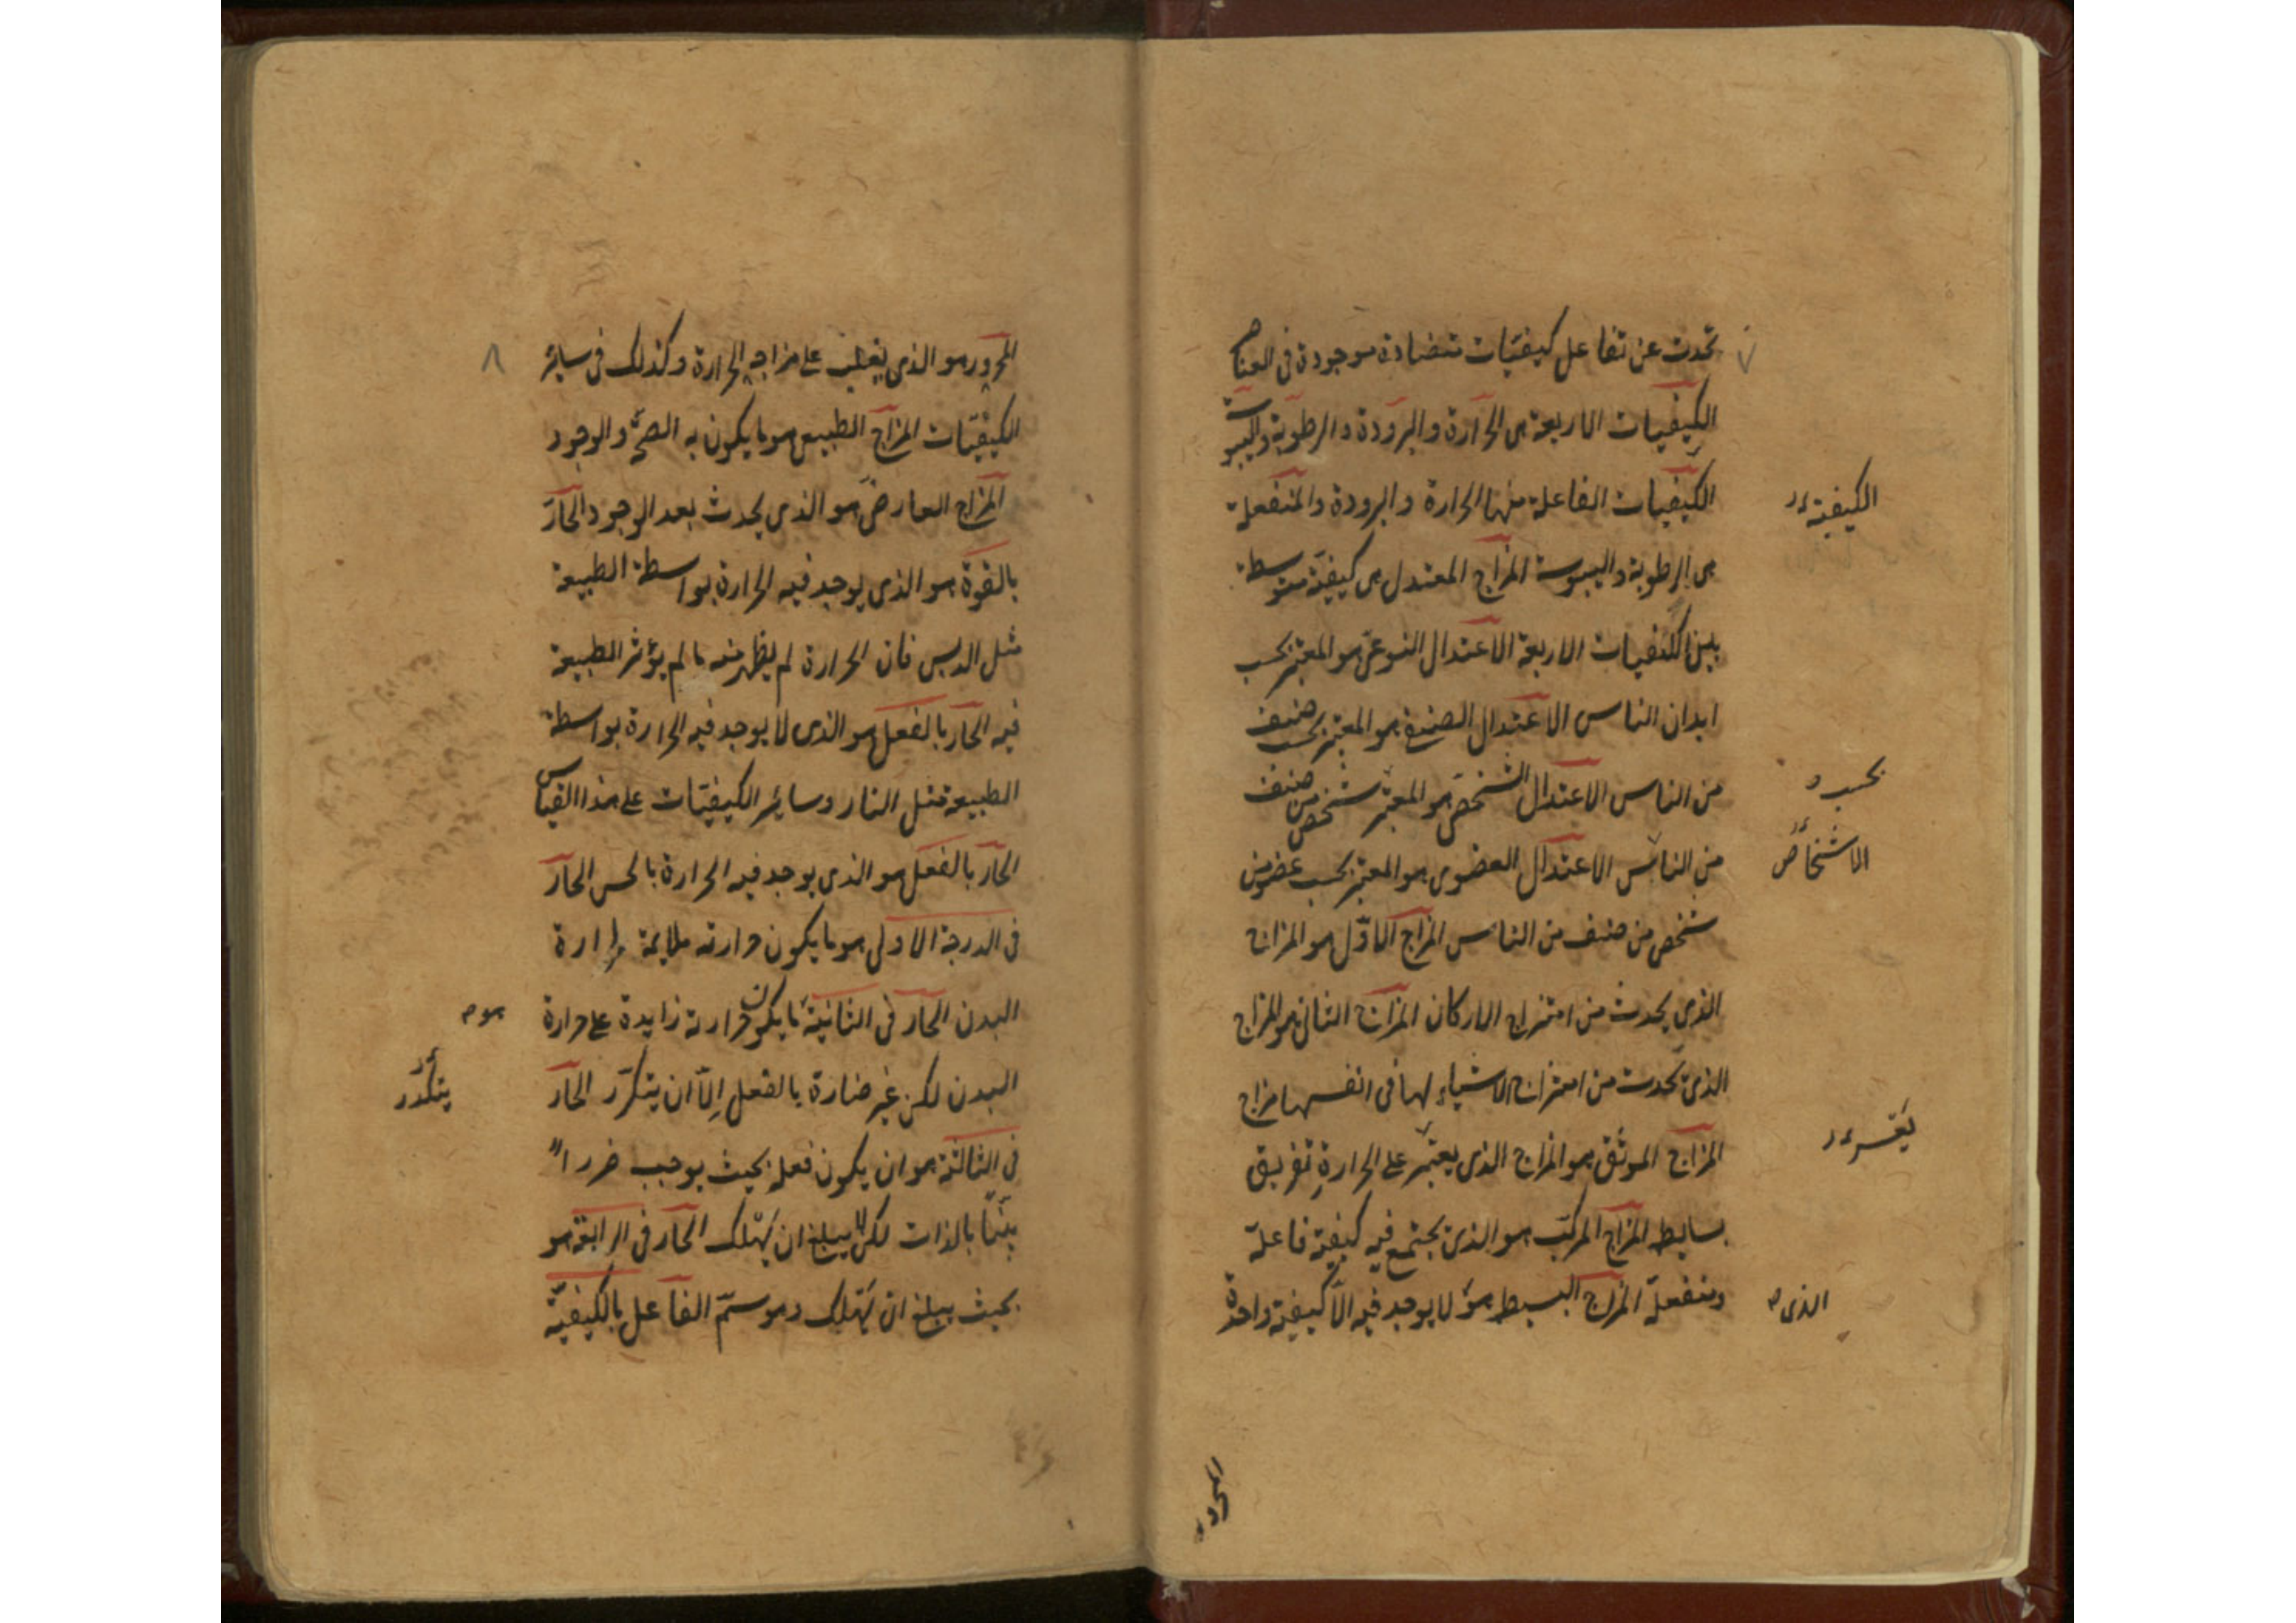 ٧
تحدث عن تفاعل كيفيّات متضادة موجودة فى العناصر
الكيفيات الاربعة هى الحرارة والبرودة والرطوبة واليبوسة
الكيفيات الفاعلة منها الحرارة والبرودة والمنفعلة
الكيفية
هى الرطوبة واليبوسة المزاج المعتدل هى كيفيّة متوسطة
بين الكيفيات الاربعة الاعتدال النوعى هو المعتبر بحسب
ابدان الناس الاعتدال الصنفى هو المعتبر بحسب صنف
من الناس الاعتدال الشخصى هو المعتبر شخص من صنف
بحسب
من الناس الاعتدال العضوى هو المعتبر بحسب عضو من
الاشخاص
شخص من صنف من الناس المزاج الاوّل هو المزاج
الذى يحدث من امتزاج الاركان المزاج الثانى هو المزاج
الذى يحدث من امتزاج الاشياء لها فى انفسها مزاج
المزاج الموثق هو المزاج الذى يعتبر على الحرارة تفريق
يعسر
بسايط المزاج المركب هو الذى يجتمع فيه كيفية فاعلة
ومنفعلة المزاج البسيط هو لا يوجد فيه الّا كيفية واحدة
الذى
المحرور
٨
المحرور هو الذى يغلب على مزاجه الحرارة وكذلك فى سائر
الكيفيّات المزاج الطبيعى هو ما يكون به الصحّة والوجود
المزاج العارضى هو الذى يحدث بعد الوجود الحارّ
بالقوّة هو الذى يوجد فيه الحرارة بواسطة الطبيعة
مثل الدبس فان الحرارة لم يظهر منه ما لم يؤثر الطبيعة
فيه الحارّ بالفعل هو الذى لا يوجد فيه الحرارة بواسطة
الطبيعة مثل النار وسائر الكيفيّات على هذا القياس
الحارّ بالفعل هو الذى يوجد فيه الحرارة بالحس الحارّ
فى الدرجة الاولى هو ما يكون حرارته ملايمة حرارة
البدن الحارّ فى الثانية ما يكون حرارته زايدة على حرارة
هو
البدن لكن غير ضارة بالفعل إلّا ان يتكرّر الحارّ
يتكرر
فى الثالثة هو ان يكون فعله بحيث يوجب ضررا
بيّنا بالذات لكن لا يبلغ ان يهلك الحارّ فى الرابعة هو
بحيث يبلغ ان يهلك وهو سمّ الفاعل بالكيفيّة